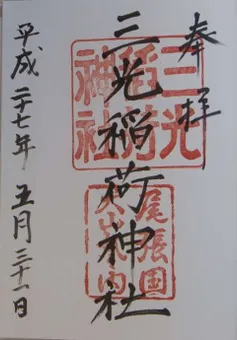 奉拝
三光稲荷神社
三光稲荷神社
尾張国犬山城内
平成二十七年 五月三十一日